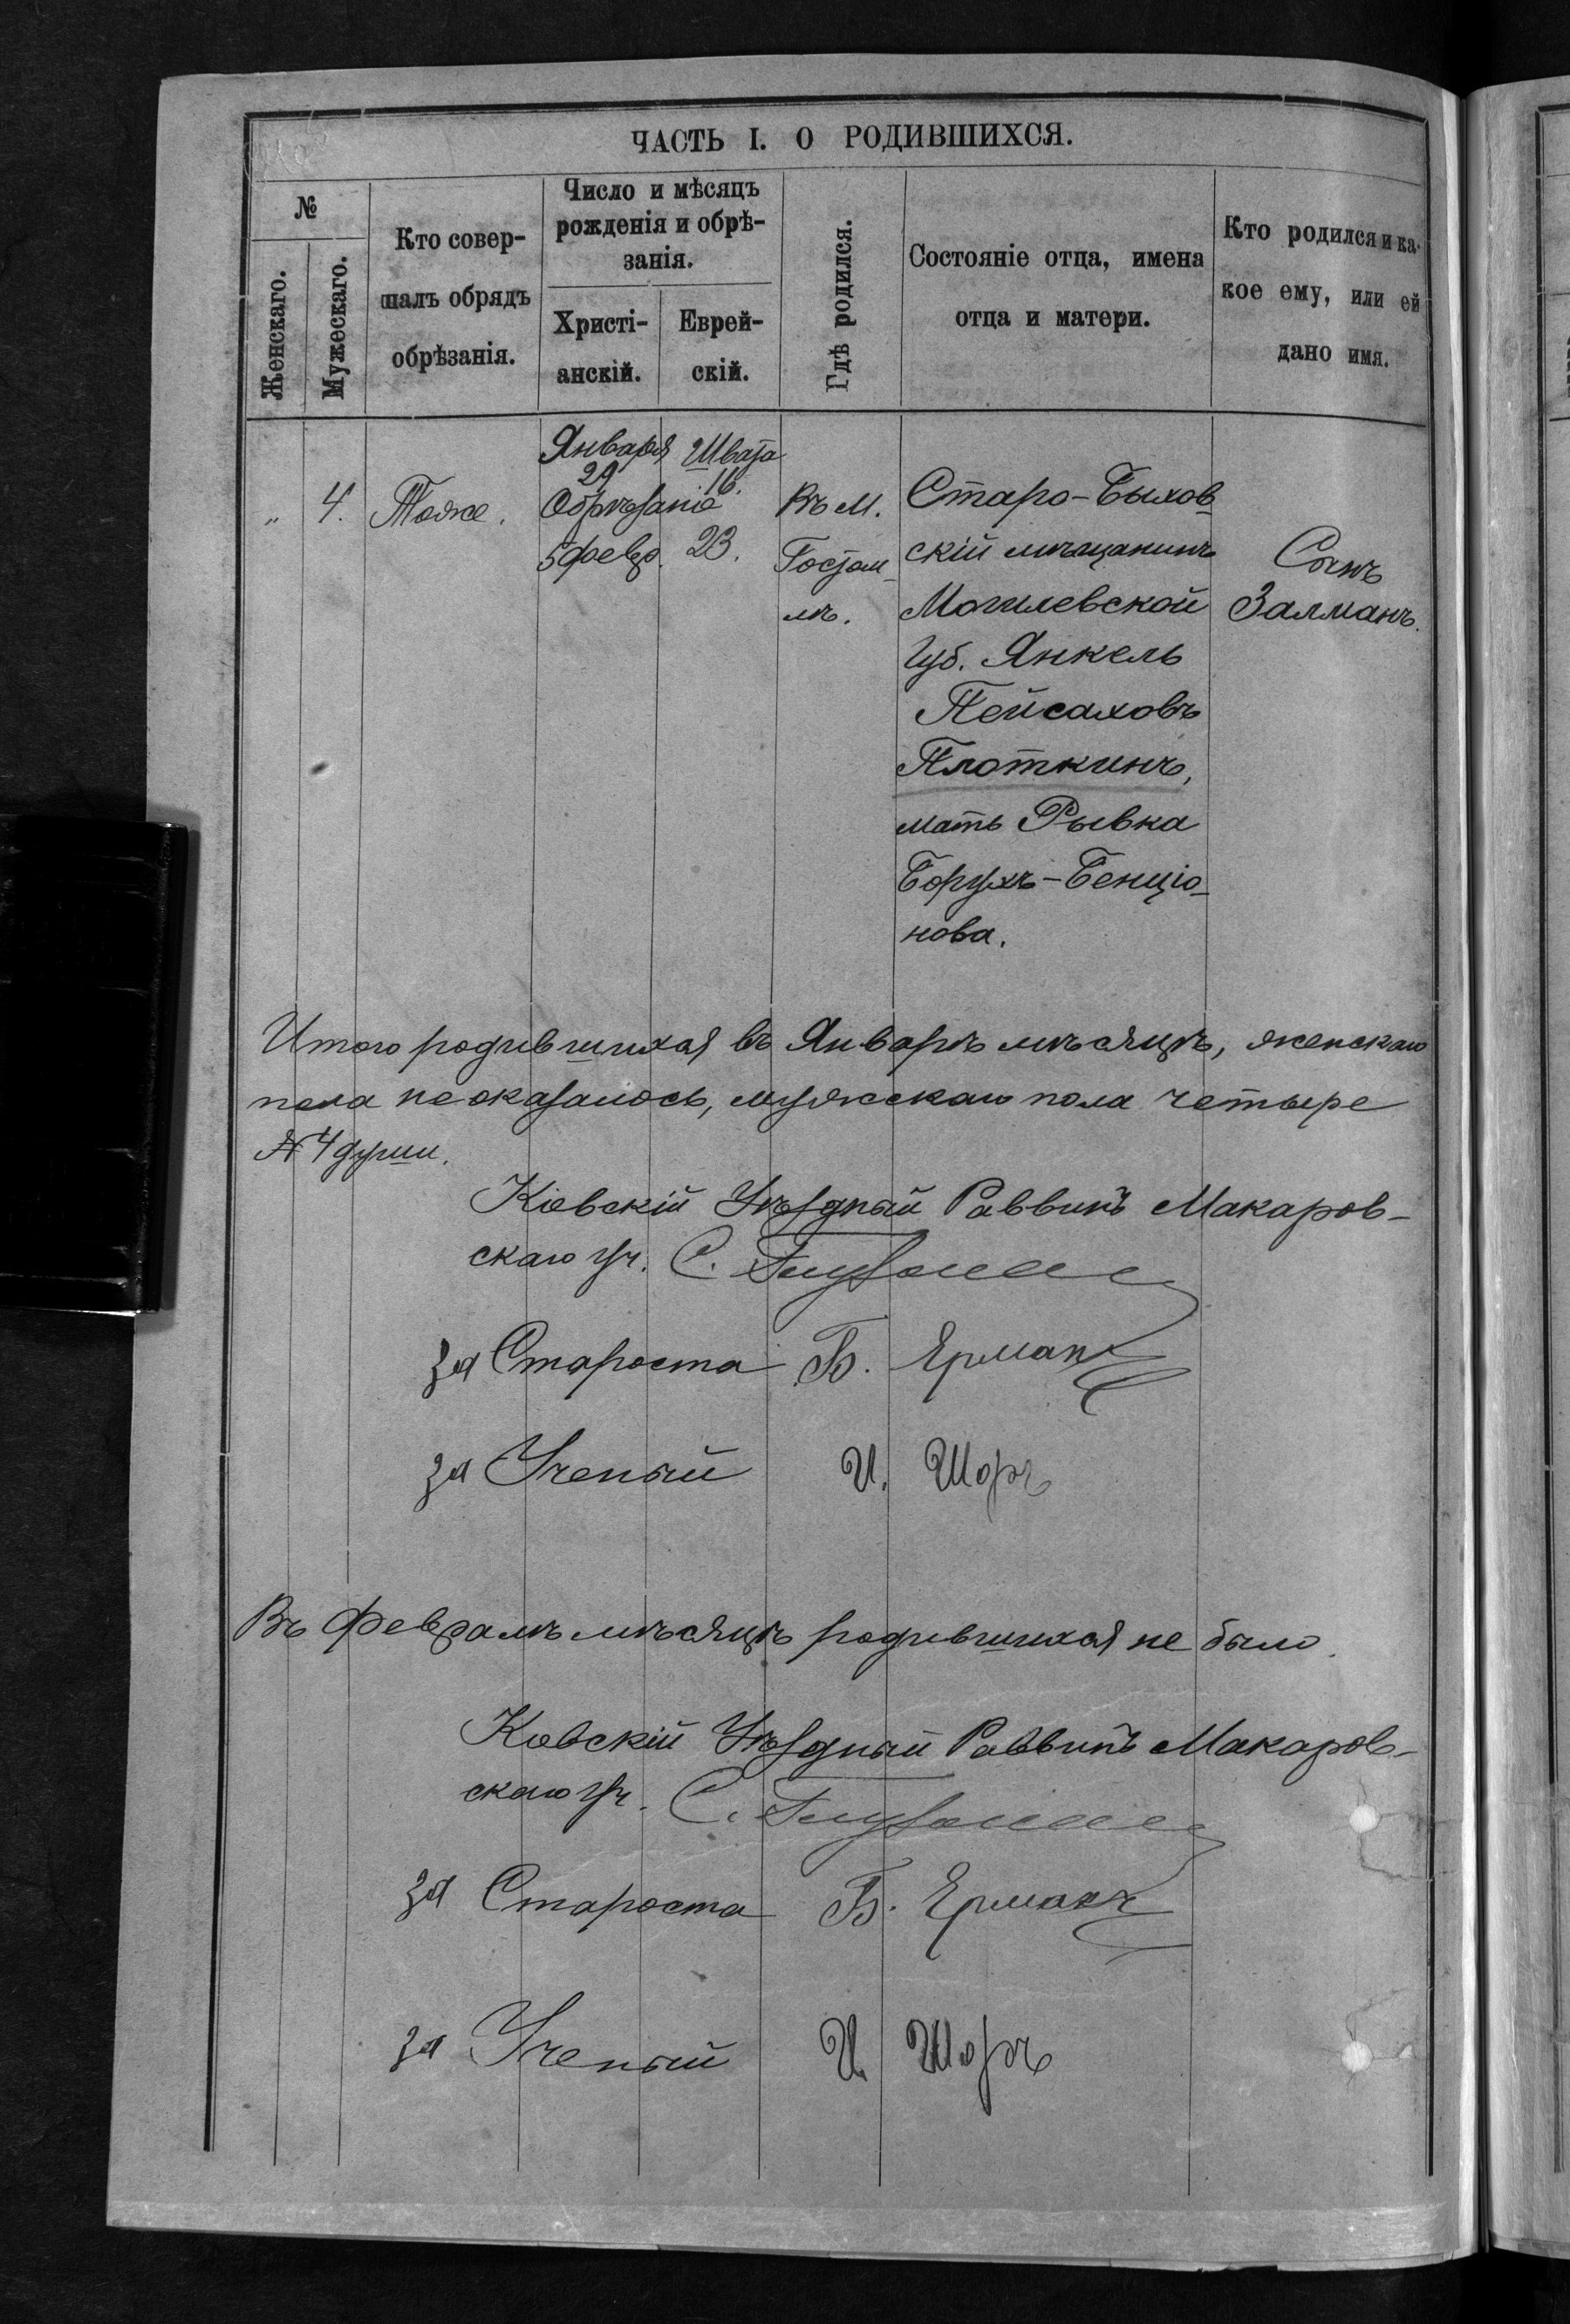 ЧАСТЬ I. О РОДИВШИХСЯ.
№
Женскаго.
Мужескаго.
Кто совер-
шалъ обрядъ
обрѣзанія.
Число и мѣсяцъ
рожденія и обрѣ-
занія.
Христі-
анскій.
Еврей-
скій.
Гдѣ родился.
Состояніе отца, имена
отца и матери.
Кто родился и ка-
кое ему, или ей
дано имя.
„ 4. Тоже.
Января Швата
29 16.
Обрѣзаніе
5 февр. 23.
Въ м.
Гостом-
лѣ.
Старо-Быхов-
скій мѣщанинъ
Могилевской
Губ. Янкель
Пейсаховъ
Плоткинъ,
мать Рывка
Борухъ-Бенціо-
нова.
Сынъ
Залманъ.
Итого родившихся въ Январѣ мѣсяцѣ, женскаго
пола не оказалось, мужскаго пола четыре
№ 4 души.
Кіевскій Уѣздный Раввинъ Макаров-
скаго уч. С.
за Староста Б. Ерманъ
за Ученый И. Шоръ
Въ Февралѣ мѣсяцѣ родившихся не было.
Кіевскій Уѣздный Раввинъ Макаров-
скаго уч. С.
за Староста Б. Ерманъ
за Ученый И. Шоръ